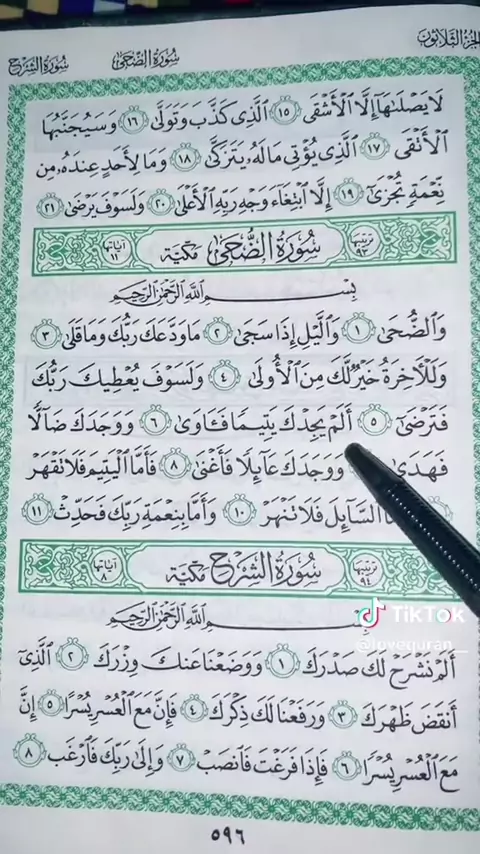 الجزء الثلاثون
سورة الضحى
سورة الشرح
لَا يَصْلَىٰهَآ إِلَّا ٱلْأَشْقَى ١٥ ٱلَّذِى كَذَّبَ وَتَوَلَّىٰ ١٦ وَسَيُجَنَّبُهَا
ٱلْأَتْقَى ١٧ ٱلَّذِى يُؤْتِى مَالَهُۥ يَتَزَكَّىٰ ١٨ وَمَا لِأَحَدٍ عِندَهُۥ مِن
نِّعْمَةٍ تُجْزَىٰٓ ١٩ إِلَّا ٱبْتِغَآءَ وَجْهِ رَبِّهِ ٱلْأَعْلَىٰ ٢٠ وَلَسَوْفَ يَرْضَىٰ ٢١
ترتيبها ٩٣ سُورَةُ الضُّحَىٰ مَكِّيَّة آياتها ١١
بِسْمِ ٱللَّهِ ٱلرَّحْمَٰنِ ٱلرَّحِيمِ
وَٱلضُّحَىٰ ١ وَٱلَّيْلِ إِذَا سَجَىٰ ٢ مَا وَدَّعَكَ رَبُّكَ وَمَا قَلَىٰ ٣
وَلَلْءَاخِرَةُ خَيْرٌ لَّكَ مِنَ ٱلْأُولَىٰ ٤ وَلَسَوْفَ يُعْطِيكَ رَبُّكَ
فَتَرْضَىٰٓ ٥ أَلَمْ يَجِدْكَ يَتِيمًا فَـَٔاوَىٰ ٦ وَوَجَدَكَ ضَآلًّا
فَهَدَىٰ وَوَجَدَكَ عَآئِلًا فَأَغْنَىٰ ٨ فَأَمَّا ٱلْيَتِيمَ فَلَا تَقْهَرْ
ٱلسَّآئِلَ فَلَا تَنْهَرْ ١٠ وَأَمَّا بِنِعْمَةِ رَبِّكَ فَحَدِّثْ ١١
ترتيبها ٩٤ سُورَةُ الشَّرْحِ مَكِّيَّة آياتها ٨
بِسْمِ ٱللَّهِ ٱلرَّحْمَٰنِ ٱلرَّحِيمِ
TikTok
@lovequran__
أَلَمْ نَشْرَحْ لَكَ صَدْرَكَ ١ وَوَضَعْنَا عَنكَ وِزْرَكَ ٢ ٱلَّذِىٓ
أَنقَضَ ظَهْرَكَ ٣ وَرَفَعْنَا لَكَ ذِكْرَكَ ٤ فَإِنَّ مَعَ ٱلْعُسْرِ يُسْرًا ٥ إِنَّ
مَعَ ٱلْعُسْرِ يُسْرًا ٦ فَإِذَا فَرَغْتَ فَٱنصَبْ ٧ وَإِلَىٰ رَبِّكَ فَٱرْغَب ٨
٥٩٦